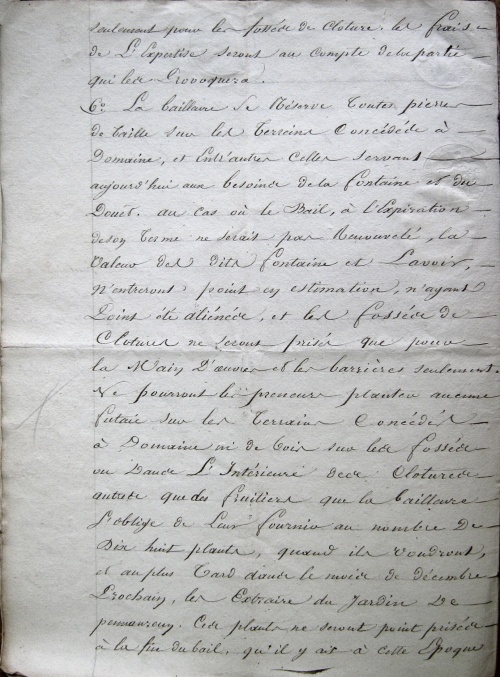 seulement pour les fossés de Cloture, les frais
de L'Expertise seront au Compte de la partie
qui les Provoquera.
6º La bailleure Se Réserve Toutes pierres
de taille sur les Terrains Concédés à
Domaine, et Entr'autres Celles servant
aujourd'hui aux besoins de la fontaine et du
Douët. au cas où le Bail, à l'Expiration
de son Terme ne serait pas Renouvelé, la
Valeur des dits fontaine et Lavoir,
N'entreront point en estimation, n'ayant
Point été aliénés, et les fossés de
Clotures ne seront prisés que pour
la Main D'œuvre et les barrières seulement.
Ne pourront les preneurs planter aucune
futaie sur les Terrains Concédés
à Domaine ni de bois sur les fossés
ou Dans L'Intérieure des Clotures
autres que des fruitiers que la bailleure
S'oblige de Leur fournir au nombre De
Dix huit plants, quand ils voudront,
et au plus Tard dans le mois de décembre
Prochain, les Extraire du Jardin De
penmarcun. Ces plants ne seront point prisés
à la fin du bail, qu'il y ait à cette Epoque